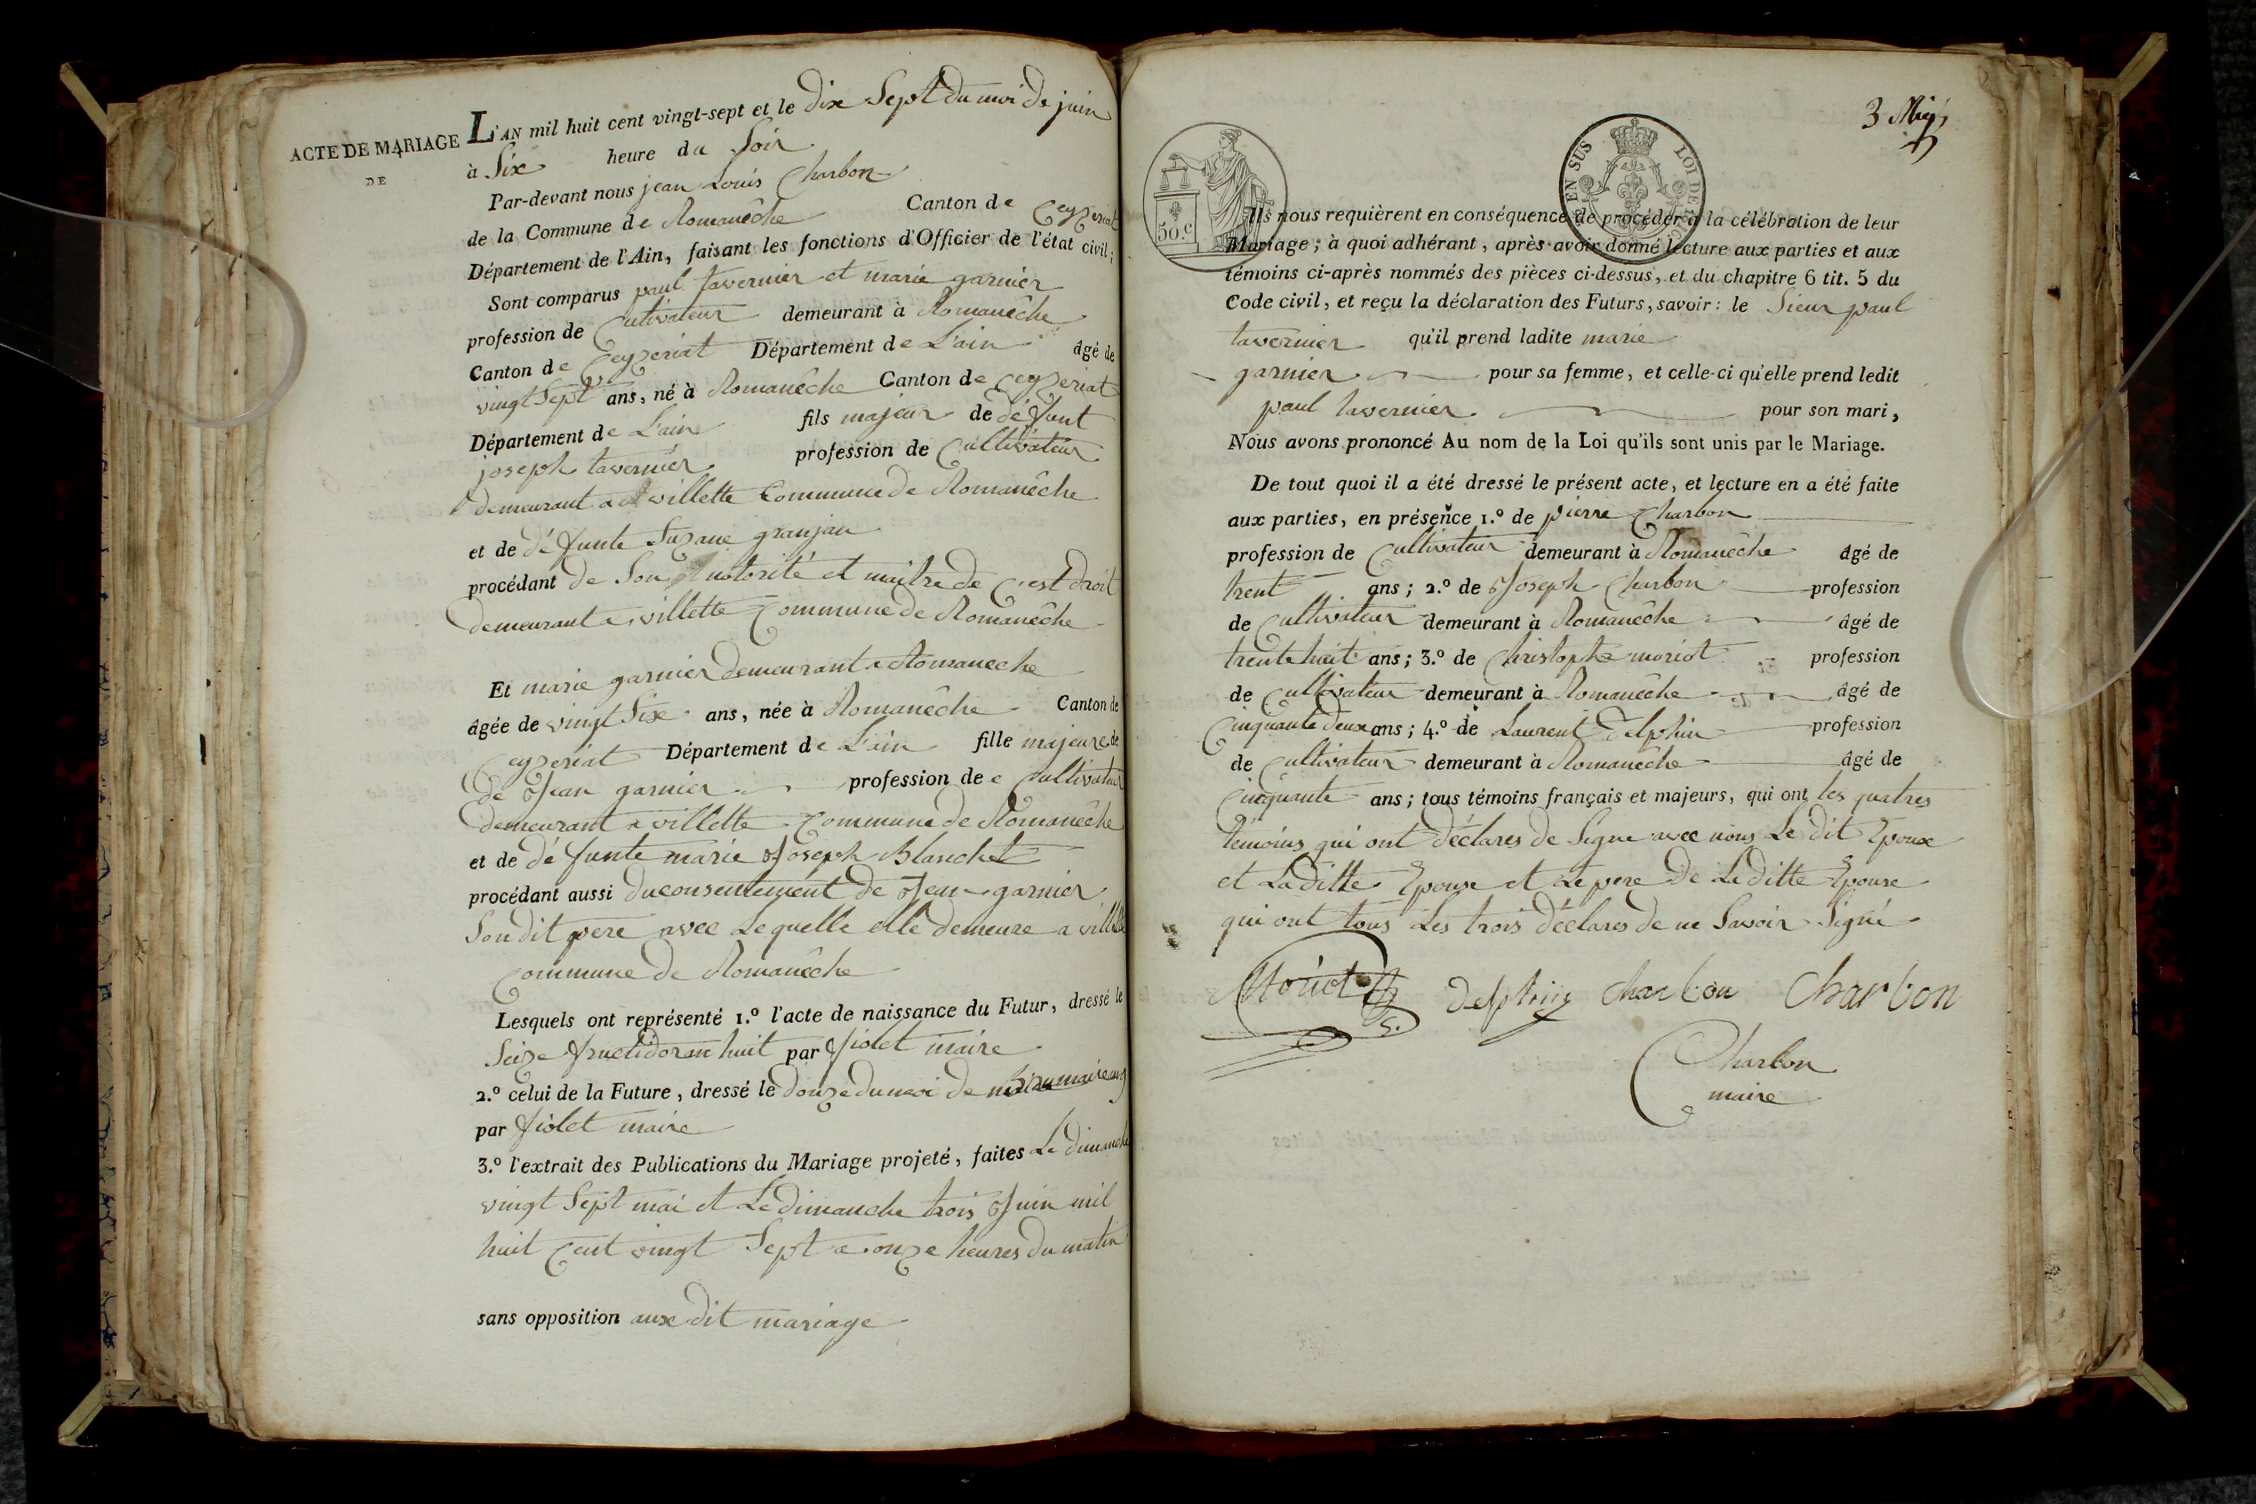 ACTE DE MARIAGE
DE
L'AN mil huit cent vingt-sept et le dix Sept du moi de juin
à Six heure du Soir
Par-devant nous jean Louis Charbon
de la Commune de Romanêche Canton de Ceyzeriat
Département de l'Ain, faisant les fonctions d'Officier de l'état civil;
Sont comparus paul tavernier et marie garnier
profession de Cultivateur demeurant à Romanêche
Canton de Ceyzeriat Département de L'ain âgé de
vingt Sept ans, né à Romanêche Canton de Ceyzeriat
Département de L'ain fils majeur de défunt
joseph tavernier profession de Cultivateur
demeurant a villette Commune de Romanêche
et de défunte Suzane granjan
procédant de Son notorité et maitre de C'est droit
demeurant a villette Commune de Romanêche
Et marie garnier demeurant a Romaneche
âgée de vingt Six ans, née à Romanêche Canton de
Ceyzeriat Département de L'ain fille majeure de
de Jean garnier profession de Cultivateur
demeurant a villette Commune de Romanêche
et de défunte marie Joseph Blanchet
procédant aussi du consentement de Jean garnier
Son dit pere avec Lequelle elle demeure a villette
Commune de Romanêche
Lesquels ont représenté 1.º l'acte de naissance du Futur, dressé le
Seize fructidor an huit par fiolet maire
2.º celui de la Future, dressé le douze du moi de
par fiolet maire
3.º l'extrait des Publications du Mariage projeté, faites Le dimanche
vingt Sept mai et Le dimanche trois Juin mil
huit Cent vingt Sept a onze heures du matin
sans opposition aux dit mariage
3
50.C
EN SUS
LOI DE
Ils nous requièrent en conséquence de procéder à la célébration de leur
Mariage; à quoi adhérant, après avoir donné lecture aux parties et aux
témoins ci-après nommés des pièces ci-dessus, et du chapitre 6 tit. 5 du
Code civil, et reçu la déclaration des Futurs, savoir: le Sieur paul
tavernier qu'il prend ladite marie
garnier pour sa femme, et celle-ci qu'elle prend ledit
paul tavernier pour son mari,
Nous avons prononcé Au nom de la Loi qu'ils sont unis par le Mariage.
De tout quoi il a été dressé le présent acte, et lecture en a été faite
aux parties, en présence 1.º de pierre Charbon
profession de Cultivateur demeurant à Romanêche âgé de
trent ans; 2.º de Joseph Charbon profession
de Cultivateur demeurant à Romanêche âgé de
trente huit ans; 3.º de Christophe moriot profession
de Cultivateur demeurant à Romanêche âgé de
Cinquante deux ans; 4.º de Laurent Delphin profession
de Cultivateur demeurant à Romanêche âgé de
Cinquante ans; tous témoins français et majeurs, qui ont les quatres
témoins qui ont déclares de Signe avec nous Le dit Epoux
et La ditte Epouse et Le pere de La ditte Epouse
qui ont tous Les trois déclares de ne Savoir Signé
Delphin Charbon Charbon
Charbon
maire